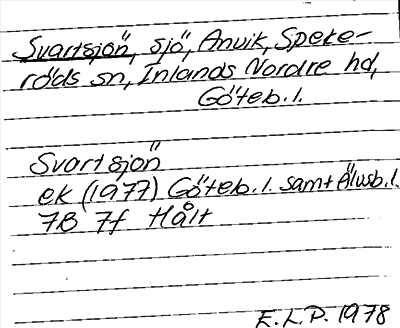 Svartsjön, sjö, Anvik, Speke-
röds sn, Inlands Nordre hd,
Göteb. l.
Svartsjön
ek (1977) Göteb. l. samt Älvsb. l.
7B 7f Hålt
E.L.P. 1978